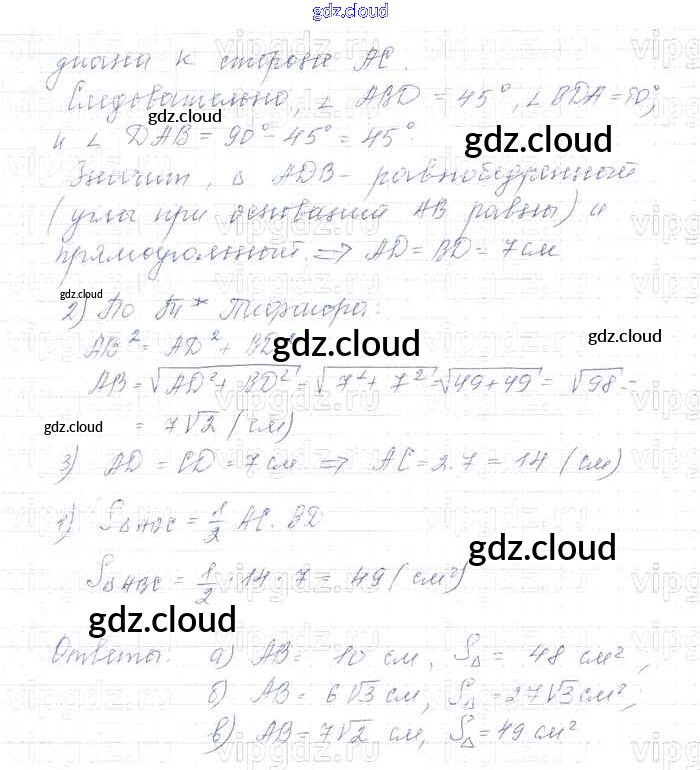 gdz.cloud
дианой к стороне AC.
Следовательно, ∠ ABD = 45°, ∠ BDA = 90°,
gdz.cloud
и ∠ DAB = 90° - 45° = 45°.
gdz.cloud
Значит, Δ ADB - равнобедренный
(углы при основании AB равны) и
прямоугольный. ⇒ AD = BD = 7 см
gdz.cloud
2) По т* Пифагора:
AB² = AD² + BD²
gdz.cloud
AB = √AD² + BD² = √7² + 7² = √49 + 49 = √98 =
gdz.cloud
= 7√2 (см)
3) AD = CD = 7 см ⇒ AC = 2·7 = 14 (см)
SΔABC = 1/2 AC · BD
gdz.cloud
SΔABC = 1/2 · 14 · 7 = 49 (см²)
gdz.cloud
Ответы: а) AB = 10 см, SΔ = 48 см²,
б) AB = 6√3 см, SΔ = 27√3 см²;
в) AB = 7√2 см, SΔ = 49 см²
gdz.cloud